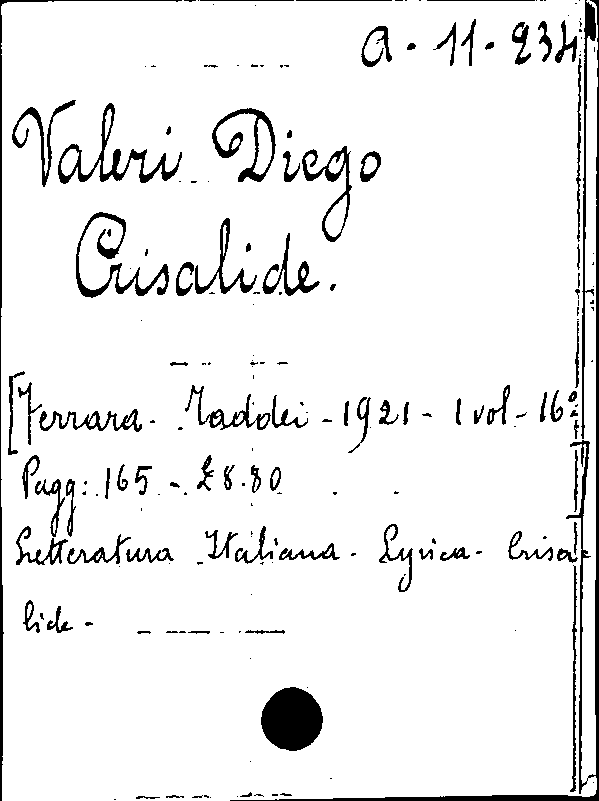 A-11-234
Valeri Diego
Crisalide.
[Ferrara - Taddei - 1921 - 1 vol - 16º
Pagg: 165 - £ 8.80 ]
Letteratura Italiana - Lyrica - Crisa=
lide -